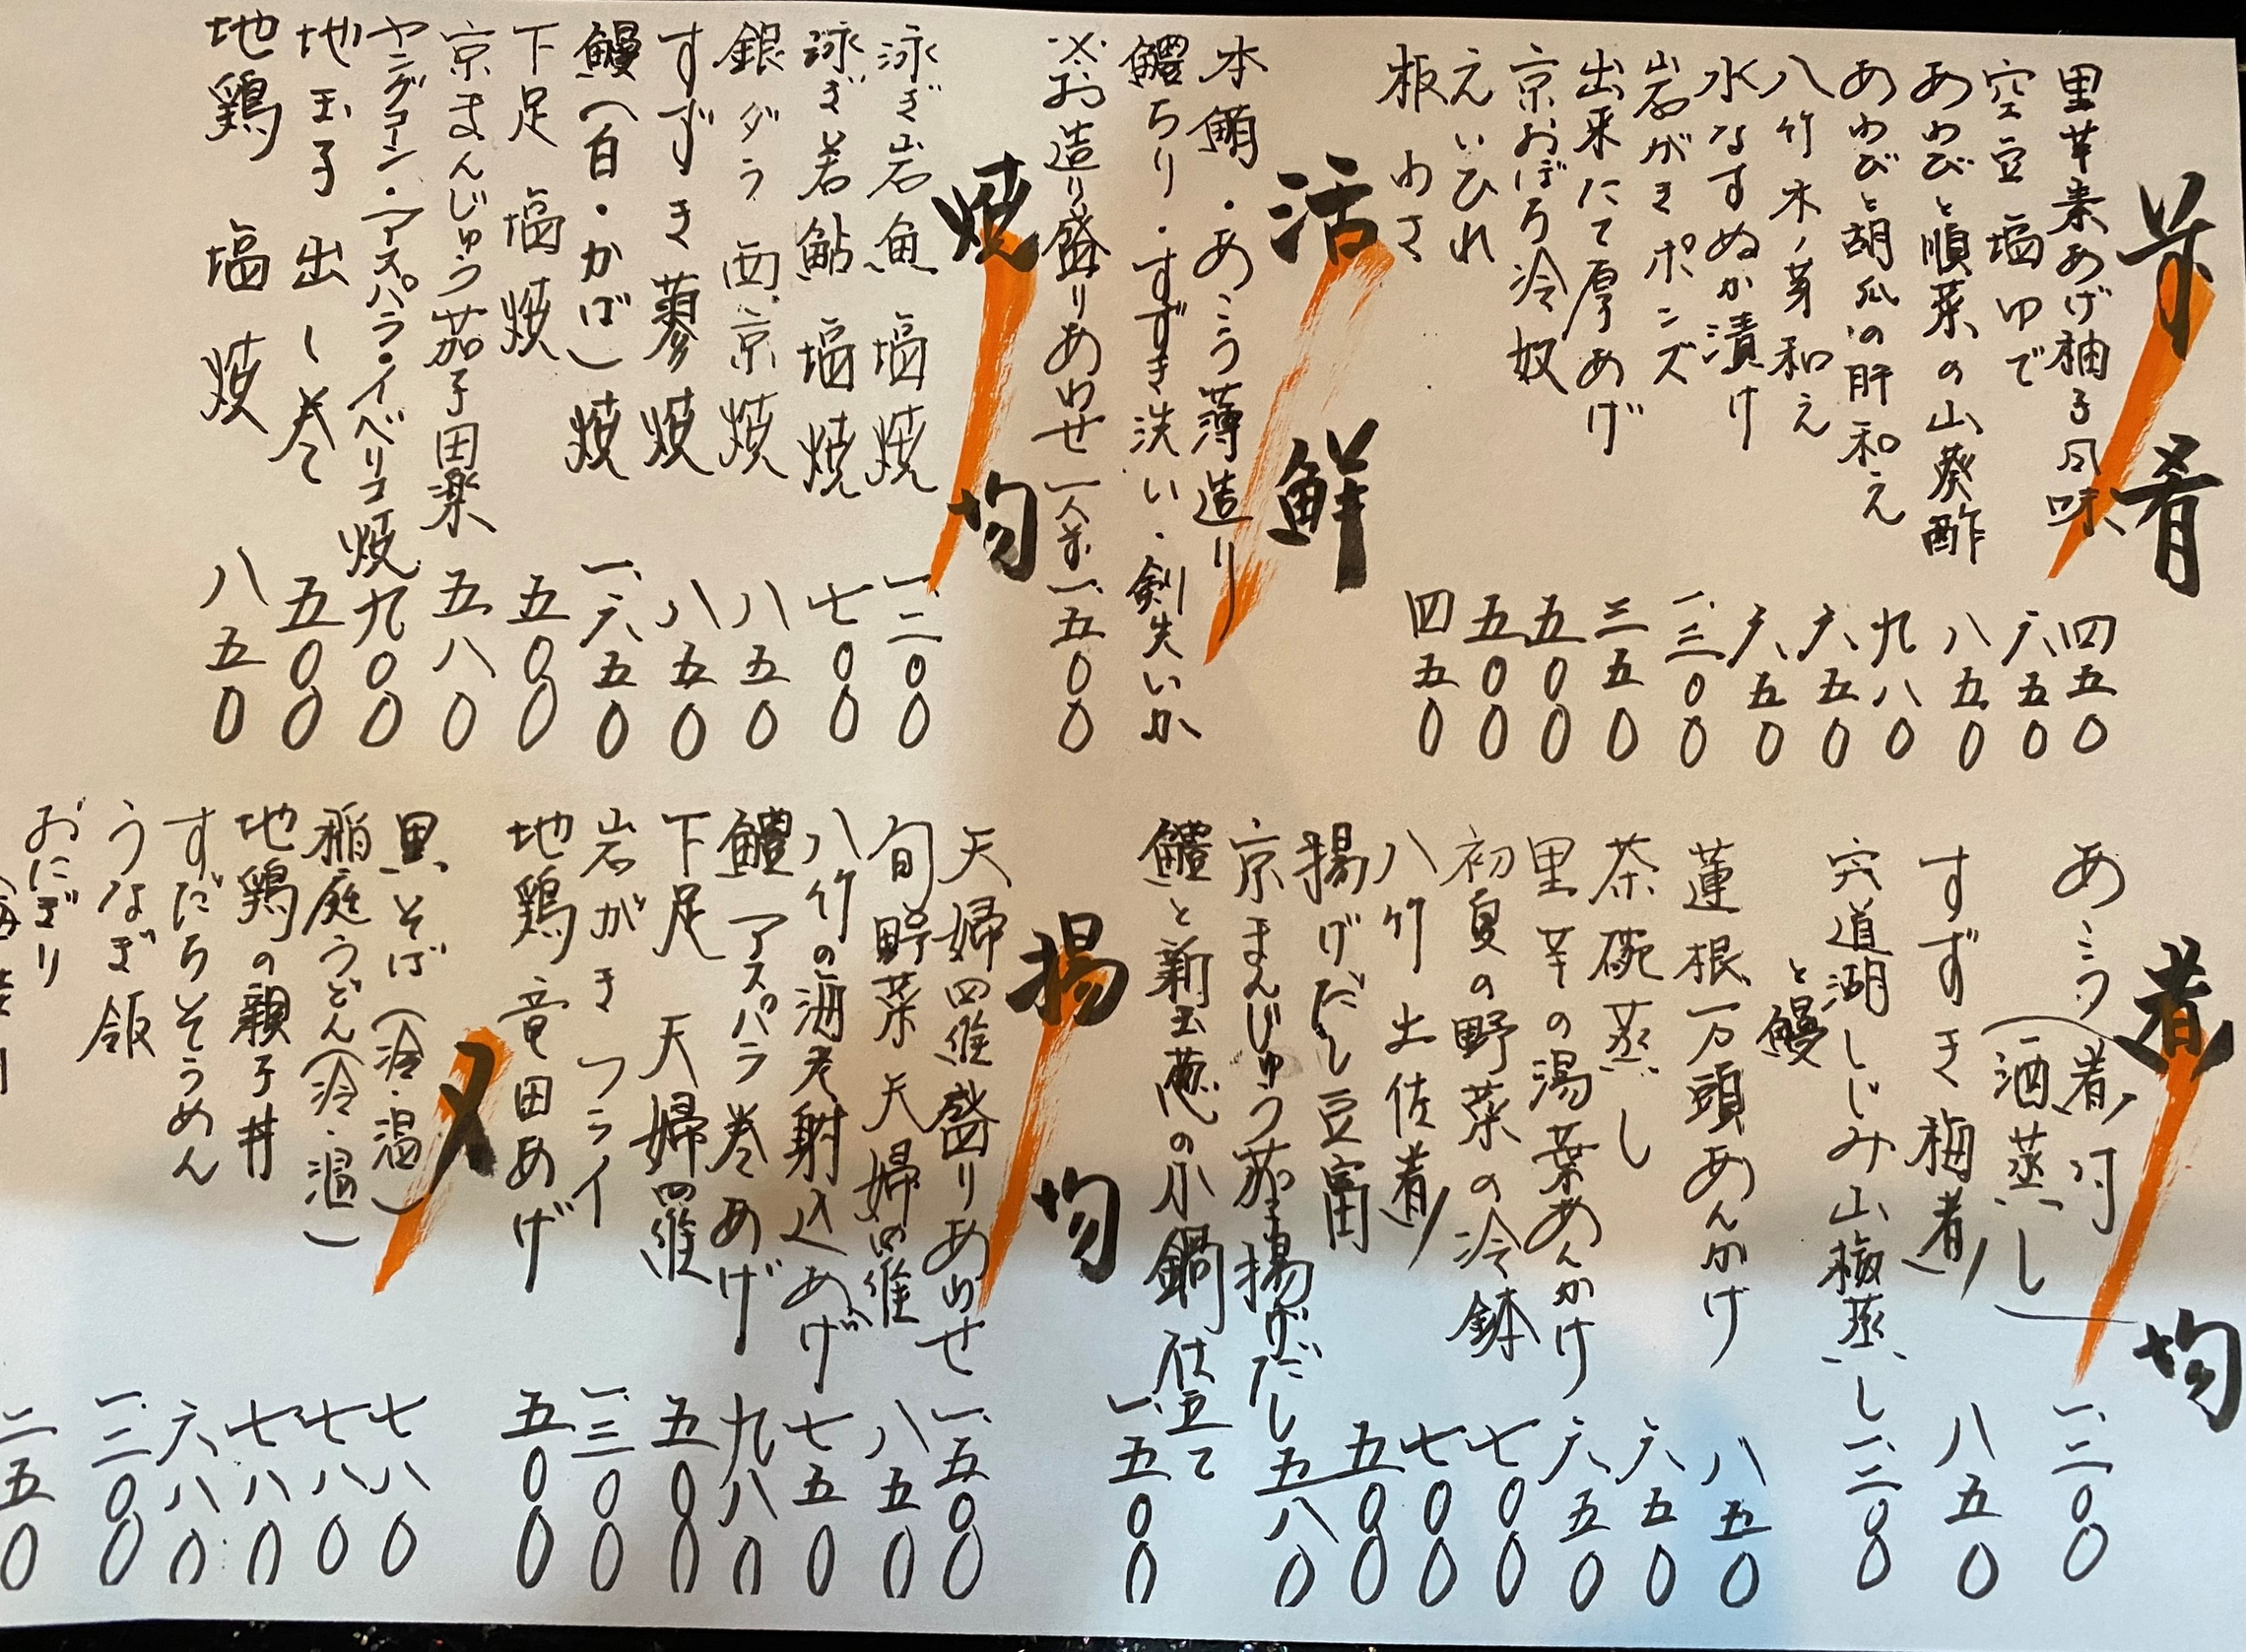 肴
里芋素あげ柚子味 四五〇
空豆塩ゆで 六五〇
あわびと順菜の山葵酢 八五〇
あわびと胡瓜の肝和え 九八〇
八竹木ノ芽和え 六五〇
水なすぬか漬け 六五〇
岩がきポンズ 一.三〇〇
出来たて厚あげ 三五〇
京おぼろ冷奴 五〇〇
えいひれ 五〇〇
板わさ 四五〇
活鮮
本鮪・あこう薄造り
鱧ちり・すずき洗い・剣先いか
※お造り盛りあわせ一人前 一.五〇〇
焼均
泳ぎ岩魚 塩焼 一.二〇〇
泳ぎ若鮎 塩焼 七〇〇
銀ダラ 西京焼 八五〇
すずき蓼焼 八五〇
鰻(白・かば)焼 一.六五〇
下足 塩焼 五〇〇
京まんじゅう茄子田楽 五八〇
ヤングコーン・アスパラ・イベリコ焼 九〇〇
地玉子 出し巻 五〇〇
地鶏 塩焼 八五〇
煮均
あこう(煮付 酒蒸し) 一.二〇〇
すずき梅煮 八五〇
宍道湖しじみ山椒蒸し 一.二〇〇
と鰻
蓮根万頭あんかけ 八五〇
茶碗蒸し 六五〇
里芋の湯葉あんかけ 六五〇
初夏の野菜の冷鉢 七〇〇
八竹 土佐煮 七〇〇
揚げだし豆富 五〇〇
京まんじゅう茄子揚げだし 五八〇
鱧と新玉葱の小鍋仕立て 一.五〇〇
揚均
天婦羅盛りあわせ 一.五〇〇
旬野菜 天婦羅 八五〇
八竹の海老射込あげ 七五〇
鱧 アスパラ巻あげ 九八〇
下足 天婦羅 五〇〇
岩がき フライ 一.三〇〇
地鶏 竜田あげ 五〇〇
〆
黒そば(冷・温) 七八〇
稲庭うどん(冷・温) 七八〇
地鶏の親子丼 七八〇
すだちそうめん 六八〇
うなぎ飯 一.三〇〇
おにぎり 二五〇